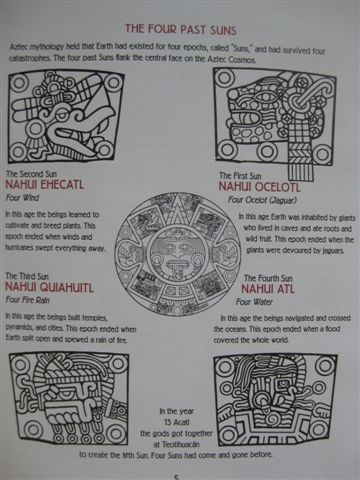 THE FOUR PAST SUNS
Aztec mythology held that Earth had existed for four epochs, called "Suns," and had survived four
catastrophes. The four past Suns flank the central face on the Aztec Cosmos.
The Second Sun
NAHUI EHECATL
Four Wind
In this age the beings learned to
cultivate and breed plants. This
epoch ended when winds and
hurricanes swept everything away.
The First Sun
NAHUI OCELOTL
Four Ocelot (Jaguar)
In this age Earth was inhabited by giants
who lived in caves and ate roots and
wild fruit. This epoch ended when the
giants were devoured by jaguars.
The Third Sun
NAHUI QUIAHUITL
Four Fire Rain
In this age the beings built temples,
pyramids, and cities. This epoch ended when
Earth split open and spewed a rain of fire.
The Fourth Sun
NAHUI ATL
Four Water
In this age the beings navigated and crossed
the oceans. This epoch ended when a flood
covered the whole world.
In the year
13 Acatl
the gods got together
at Teotihuacán
to create the fifth Sun. Four Suns had come and gone before.
5